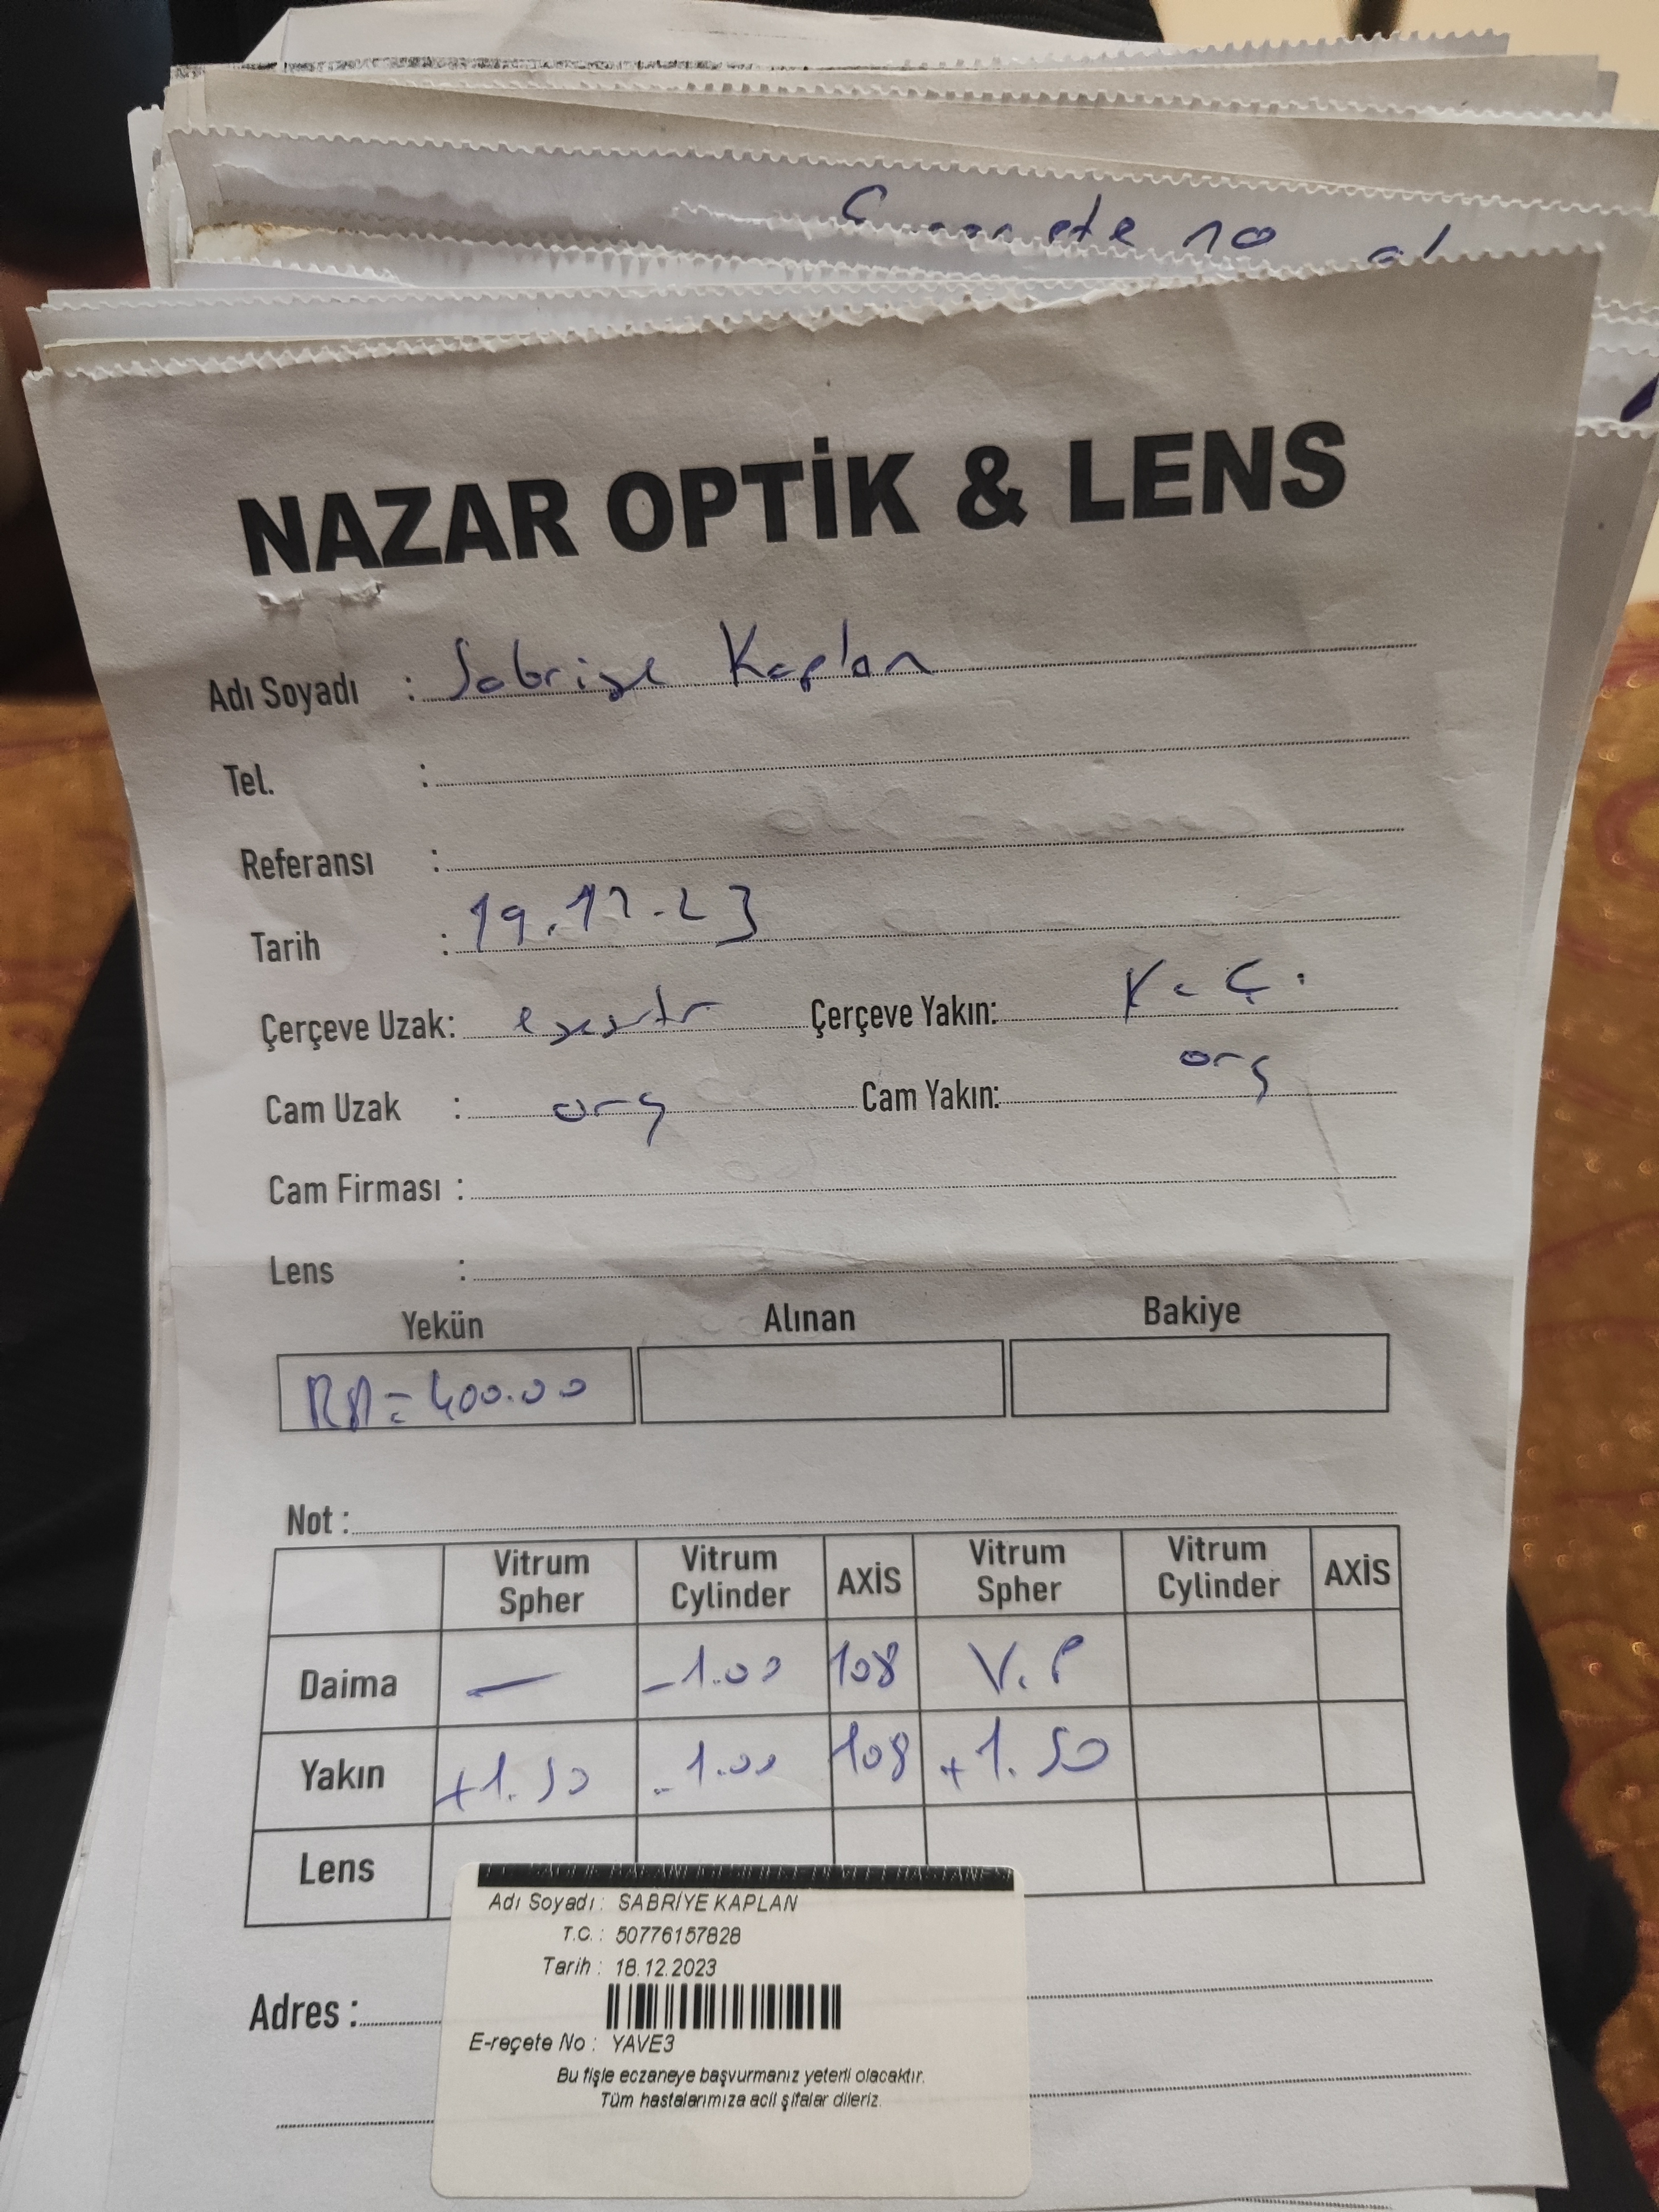 ete 10 al
NAZAR OPTİK & LENS
Adı Soyadı : Sabriye Kaplan
Tel. :
Referansı :
Tarih : 19.12.23
Çerçeve Uzak: Çerçeve Yakın: K.Ç.
Cam Uzak : org Cam Yakın: org
Cam Firması :
Lens :
Yekün Alınan Bakiye
RA= 400.00
Not :
Vitrum Spher Vitrum Cylinder AXİS Vitrum Spher Vitrum Cylinder AXİS
Daima — -1.00 108 V.P
Yakın +1.50 -1.00 108 +1.50
Lens
Adı Soyadı : SABRİYE KAPLAN
T.C. : 50776157828
Tarih : 18.12.2023
Adres :
E-reçete No : YAVE3
Bu fişle eczaneye başvurmanız yeterli olacaktır.
Tüm hastalarımıza acil şifalar dileriz.